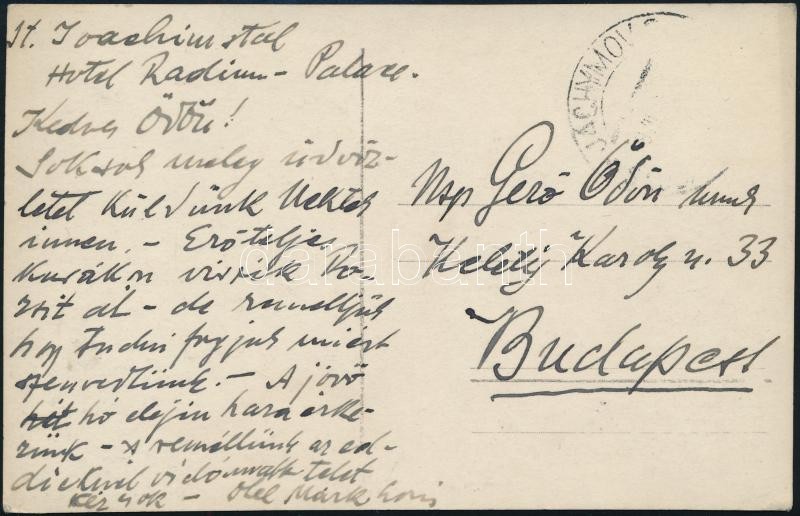 St. Joachimstal
Hotel Radium - Palace.
Kedves Ödön!
Soksok meleg üdvöz-
letet küldünk Nektek
innen. - Erőteljes
kurákon
át - de reméljük
hogy tudni fogjuk miért
szenvedtünk. - A jövő
hét hó elején haza érke-
zünk - s az ed-
telet
ölel Márk
JÁCHYMOV
Nsgs Gerő Ödön urnak
Keleti Karoly u. 33
Budapest.
darabanth